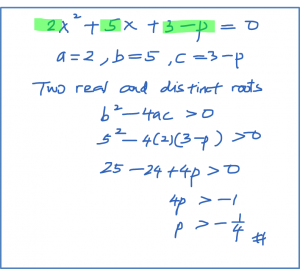 2x² + 5x + 3-p = 0
a=2, b=5, c=3-p
Two real and distinct roots
b² - 4ac > 0
5² - 4(2)(3-p) > 0
25 - 24 + 4p > 0
4p > -1
p > -1/4 #